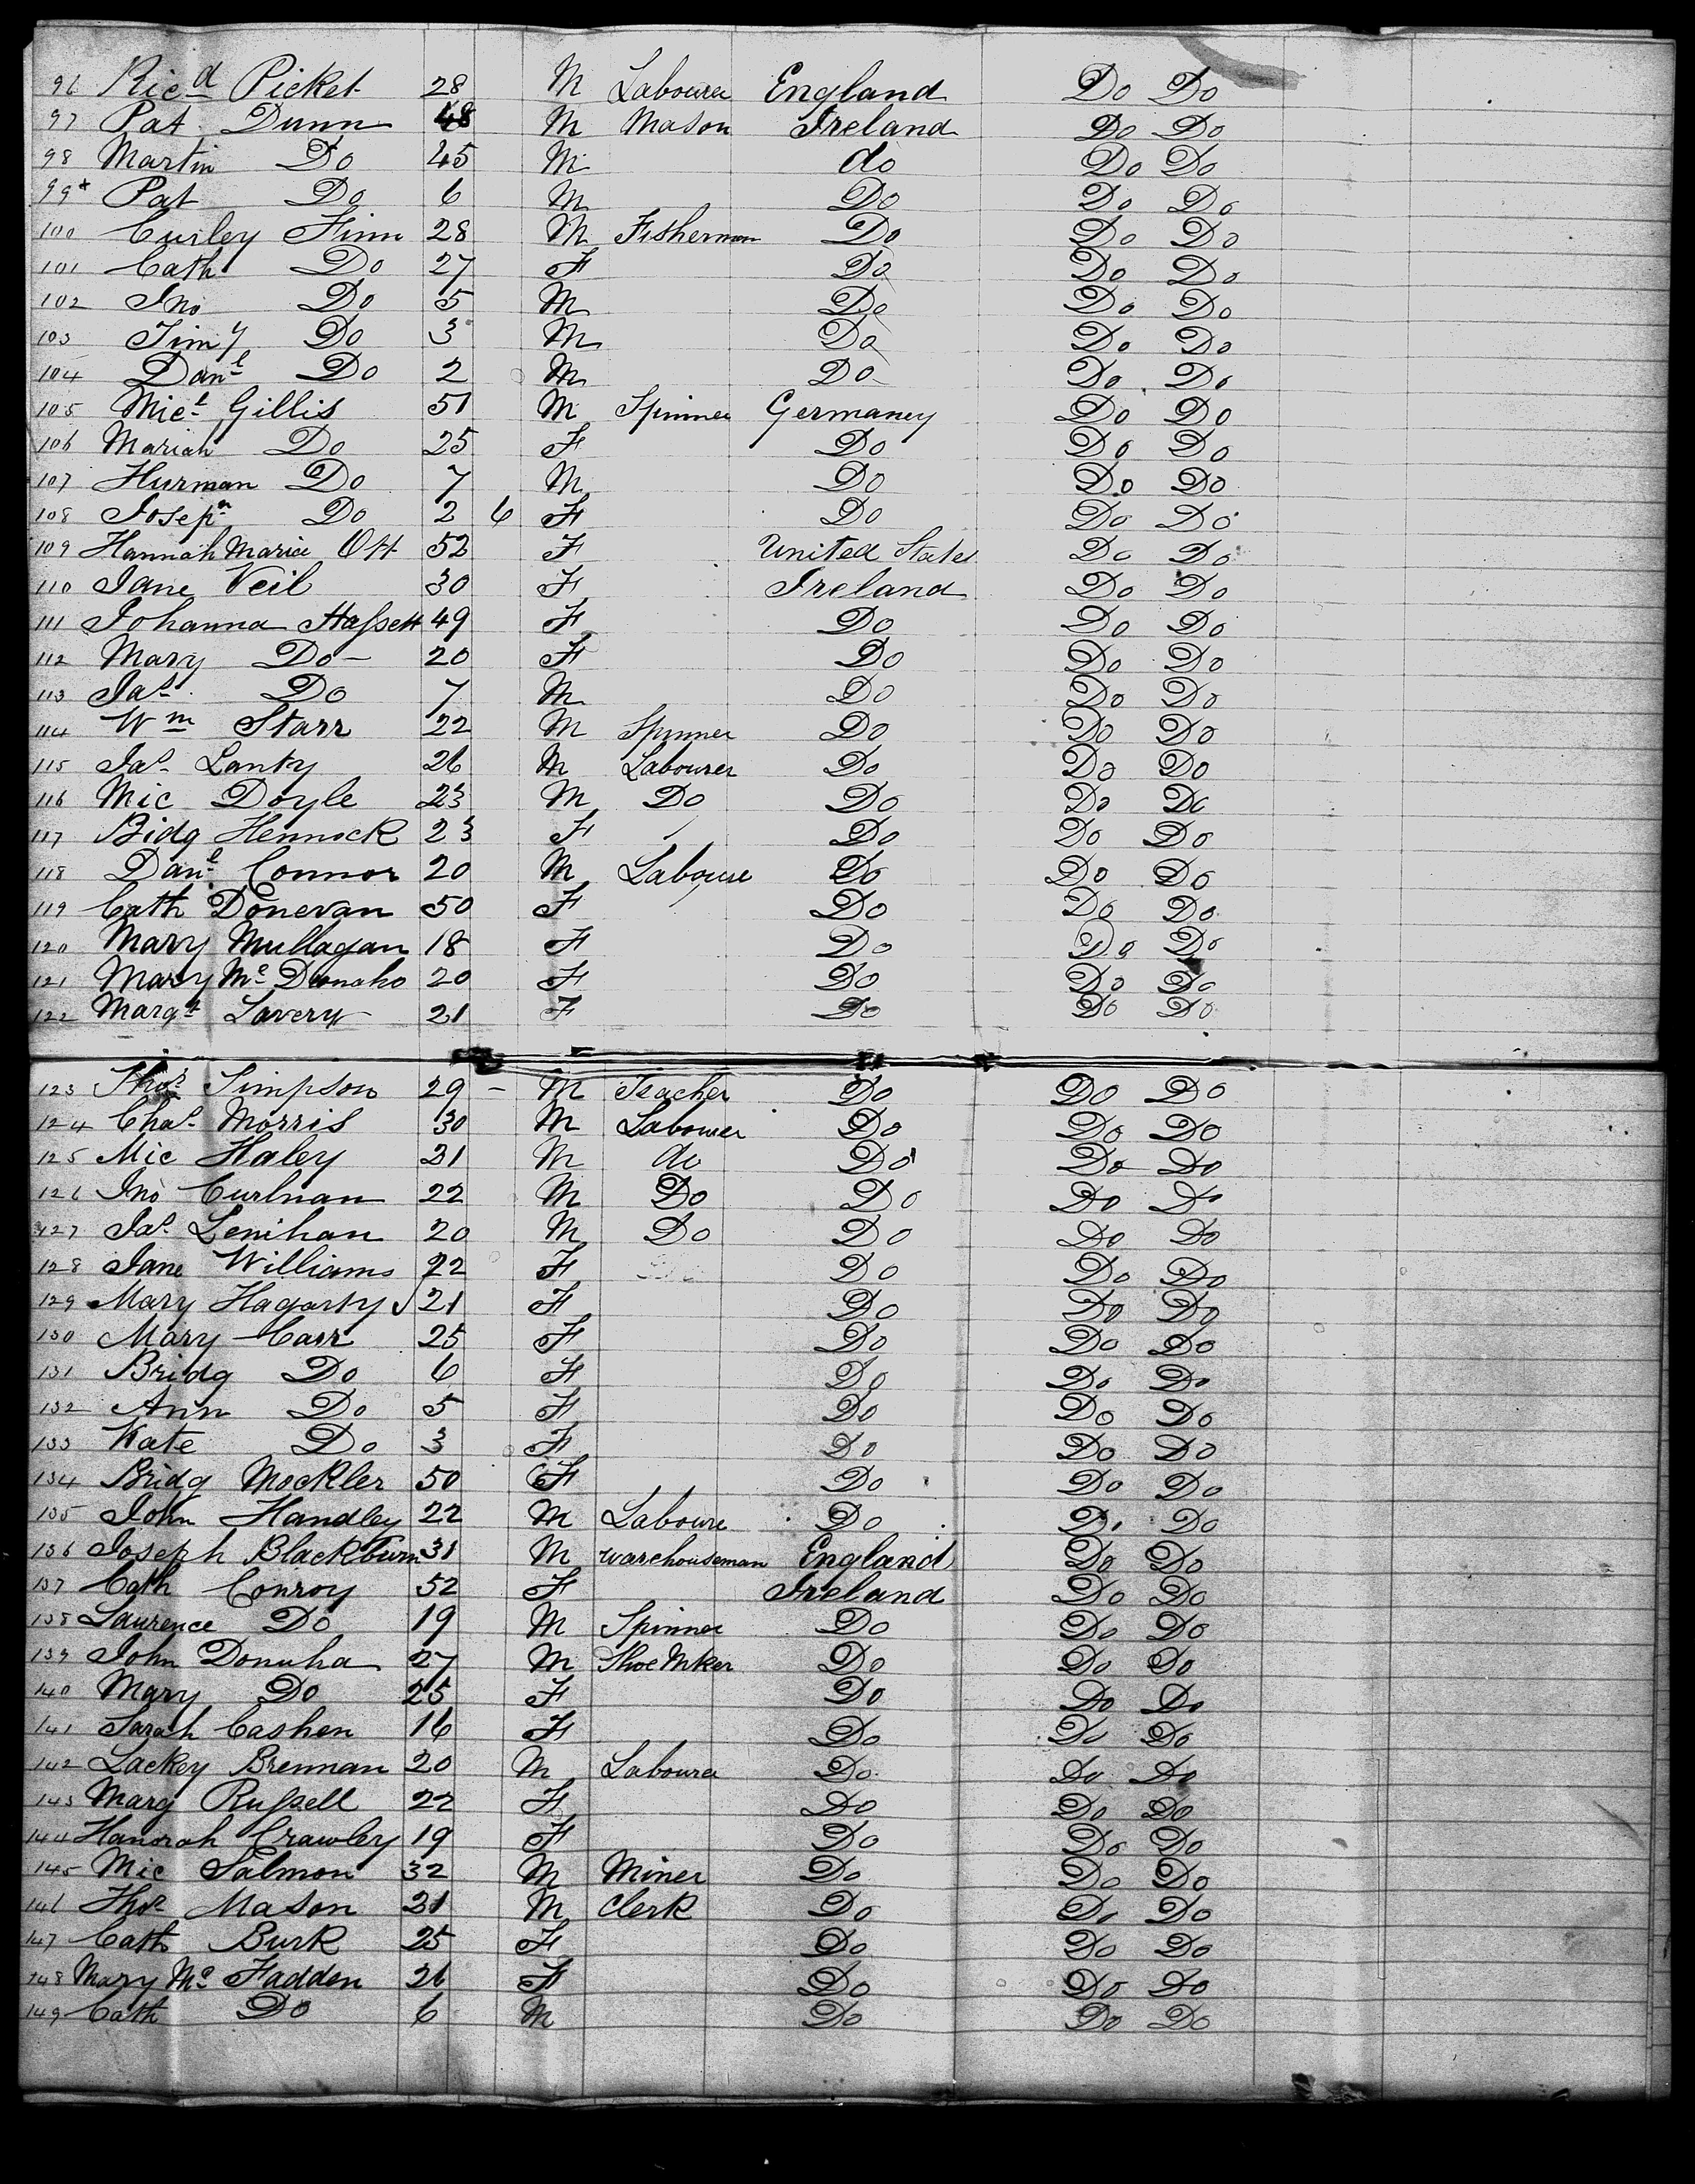 96 Ricd Picket 28 M Labourer England Do Do
97 Pat Dunn 48 M Mason Ireland Do Do
98 Martin Do 45 M do Do Do
99* Pat Do 6 M Do Do Do
100 Curley Finn 28 M Fisherman Do Do Do
101 Cath Do 27 F Do Do Do
102 Jno Do 5 M Do Do Do
103 Timy Do 3 M Do Do Do
104 Danl Do 2 M Do Do Do
105 Micl Gillis 51 M Spinner Germaney Do Do
106 Mariah Do 25 F Do Do Do
107 Hurman Do 7 M Do Do Do
108 Josepn Do 2 6 F Do Do Do
109 Hannah Maria Ott 52 F United States Do Do
110 Jane Veil 30 F Ireland Do Do
111 Johanna Hassett 49 F Do Do Do
112 Mary Do - 20 F Do Do Do
113 Jas Do 7 M Do Do Do
114 Wm Starr 22 M Spinner Do Do Do
115 Jas Lanty 26 M Labourer Do Do Do
116 Mic Doyle 23 M Do Do Do Do
117 Bidg Hennock 23 F Do Do Do
118 Danl Connor 20 M Laboure Do Do Do
119 Cath Donevan 50 F Do Do Do
120 Mary Mullagan 18 F Do Do Do
121 Mary Mc Donaho 20 F Do Do Do
122 Margt Lavery 21 F Do Do Do
123 Thos Simpson 29 - M Teacher Do Do Do
124 Chas Morris 30 M Labourer Do Do Do
125 Mic Haley 21 M do Do Do Do
126 Jno Curlnan 22 M Do Do Do Do
127 Jas Lenihan 20 M Do Do Do Do
128 Jane Williams 22 F Do Do Do
129 Mary Hagarty 21 F Do Do Do
130 Mary Carr 25 F Do Do Do
131 Bridg Do 6 F Do Do Do
132 Ann Do 5 F Do Do Do
133 Kate Do 3 F Do Do Do
134 Bridg Mockler 50 F Do Do Do
135 John Handley 22 M Laboure Do Do Do
136 Joseph Blackburn 31 M warehouseman England Do Do
137 Cath Conroy 52 F Ireland Do Do
138 Laurence Do 19 M Spinner Do Do Do
139 John Donuha 27 M Shoe Mker Do Do Do
140 Mary Do 25 F Do Do Do
141 Sarah Cashen 16 F Do Do Do
142 Lackey Brennan 20 M Labourer Do Do Do
143 Marg Russell 22 F Do Do Do
144 Hanorah Crawley 19 F Do Do Do
145 Mic Salmon 32 M Miner Do Do Do
146 Thos Mason 21 M Clerk Do Do Do
147 Cath Burk 25 F Do Do Do
148 Mary Mc Fadden 26 F Do Do Do
149 Cath Do 6 M Do Do Do